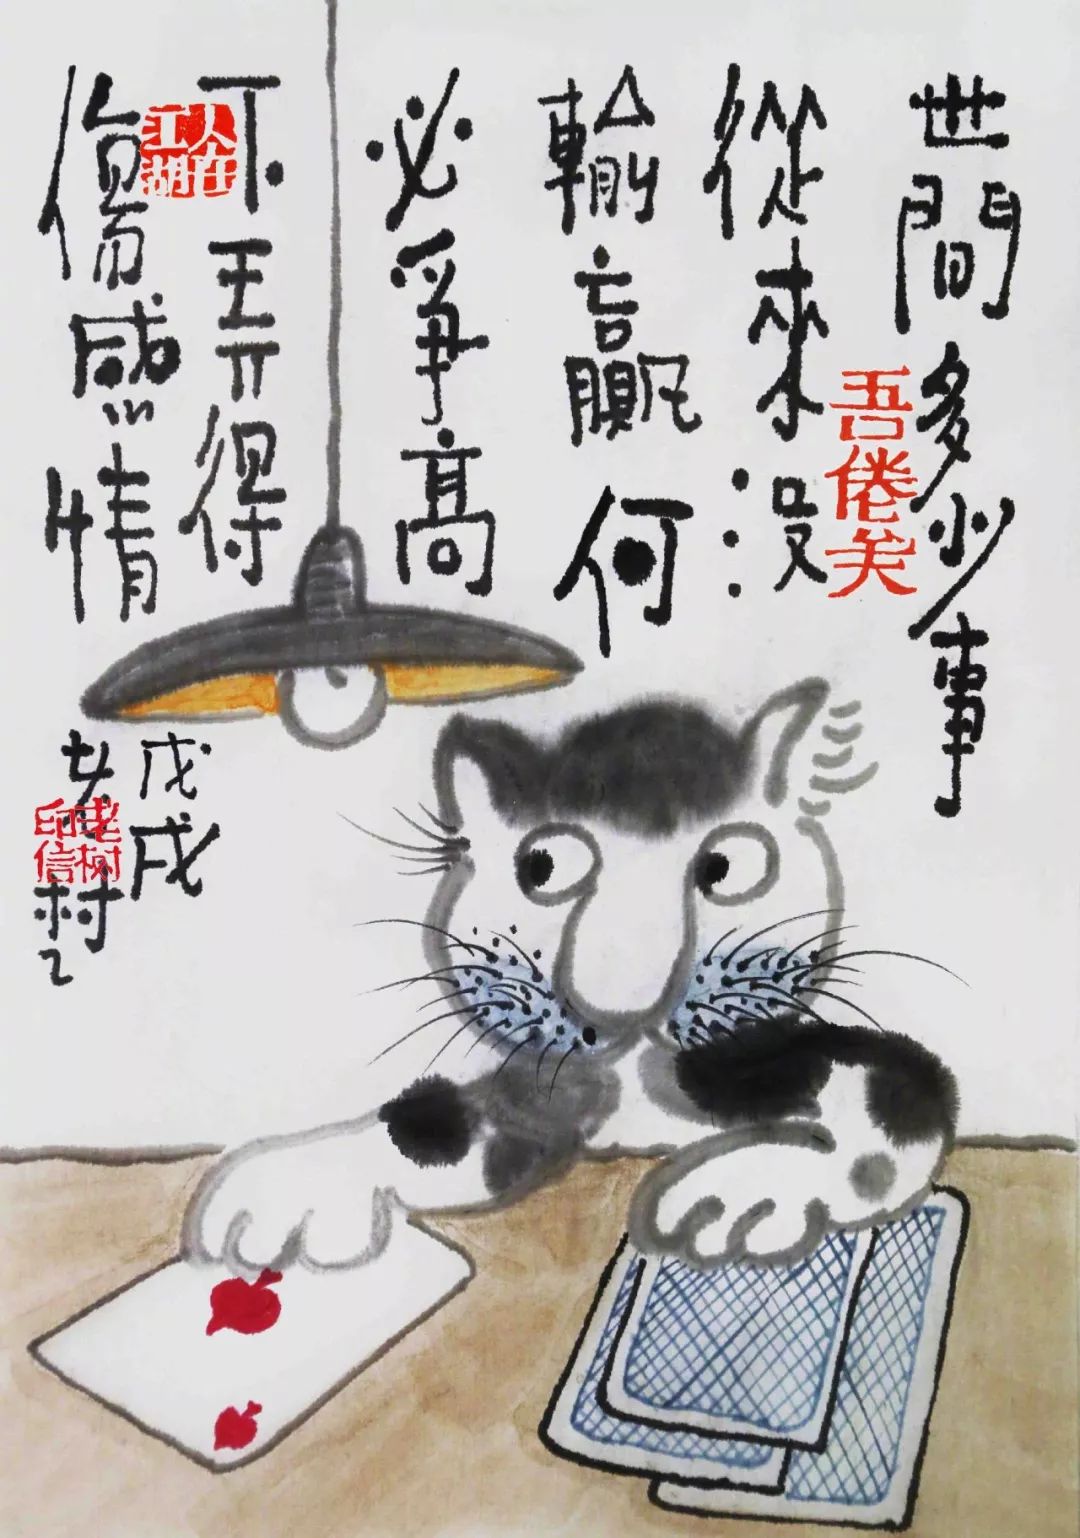 世間多少事
從來沒
輸贏何
必爭高
下弄得
傷感情
戊戌
老树
吾倦矣
人在江湖
老树印信